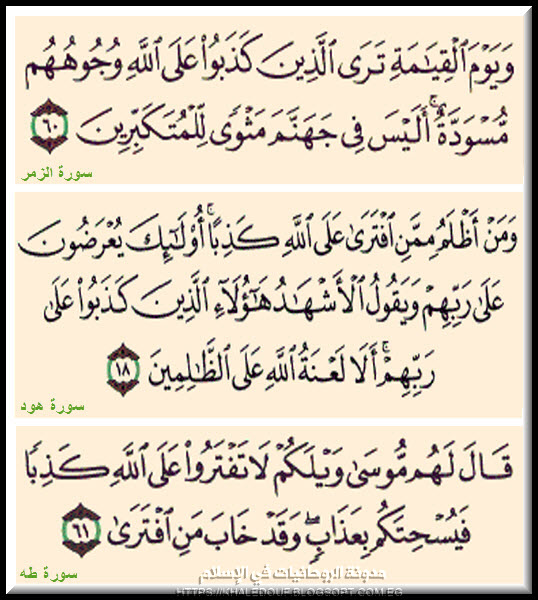 وَيَوْمَ ٱلْقِيَٰمَةِ تَرَى ٱلَّذِينَ كَذَبُوا۟ عَلَى ٱللَّهِ وُجُوهُهُم
مُّسْوَدَّةٌ ۚ أَلَيْسَ فِى جَهَنَّمَ مَثْوًى لِّلْمُتَكَبِّرِينَ ٦٠
سورة الزمر
وَمَنْ أَظْلَمُ مِمَّنِ ٱفْتَرَىٰ عَلَى ٱللَّهِ كَذِبًا ۚ أُو۟لَٰٓئِكَ يُعْرَضُونَ
عَلَىٰ رَبِّهِمْ وَيَقُولُ ٱلْأَشْهَٰدُ هَٰٓؤُلَآءِ ٱلَّذِينَ كَذَبُوا۟ عَلَىٰ
رَبِّهِمْ ۚ أَلَا لَعْنَةُ ٱللَّهِ عَلَى ٱلظَّٰلِمِينَ ١٨
سورة هود
قَالَ لَهُم مُّوسَىٰ وَيْلَكُمْ لَا تَفْتَرُوا۟ عَلَى ٱللَّهِ كَذِبًا
فَيُسْحِتَكُم بِعَذَابٍ ۖ وَقَدْ خَابَ مَنِ ٱفْتَرَىٰ ٦١
سورة طه
مدونة الروحانيات في الإسلام
HTTPS://KHALEDOUF.BLOGSPOT.COM.EG